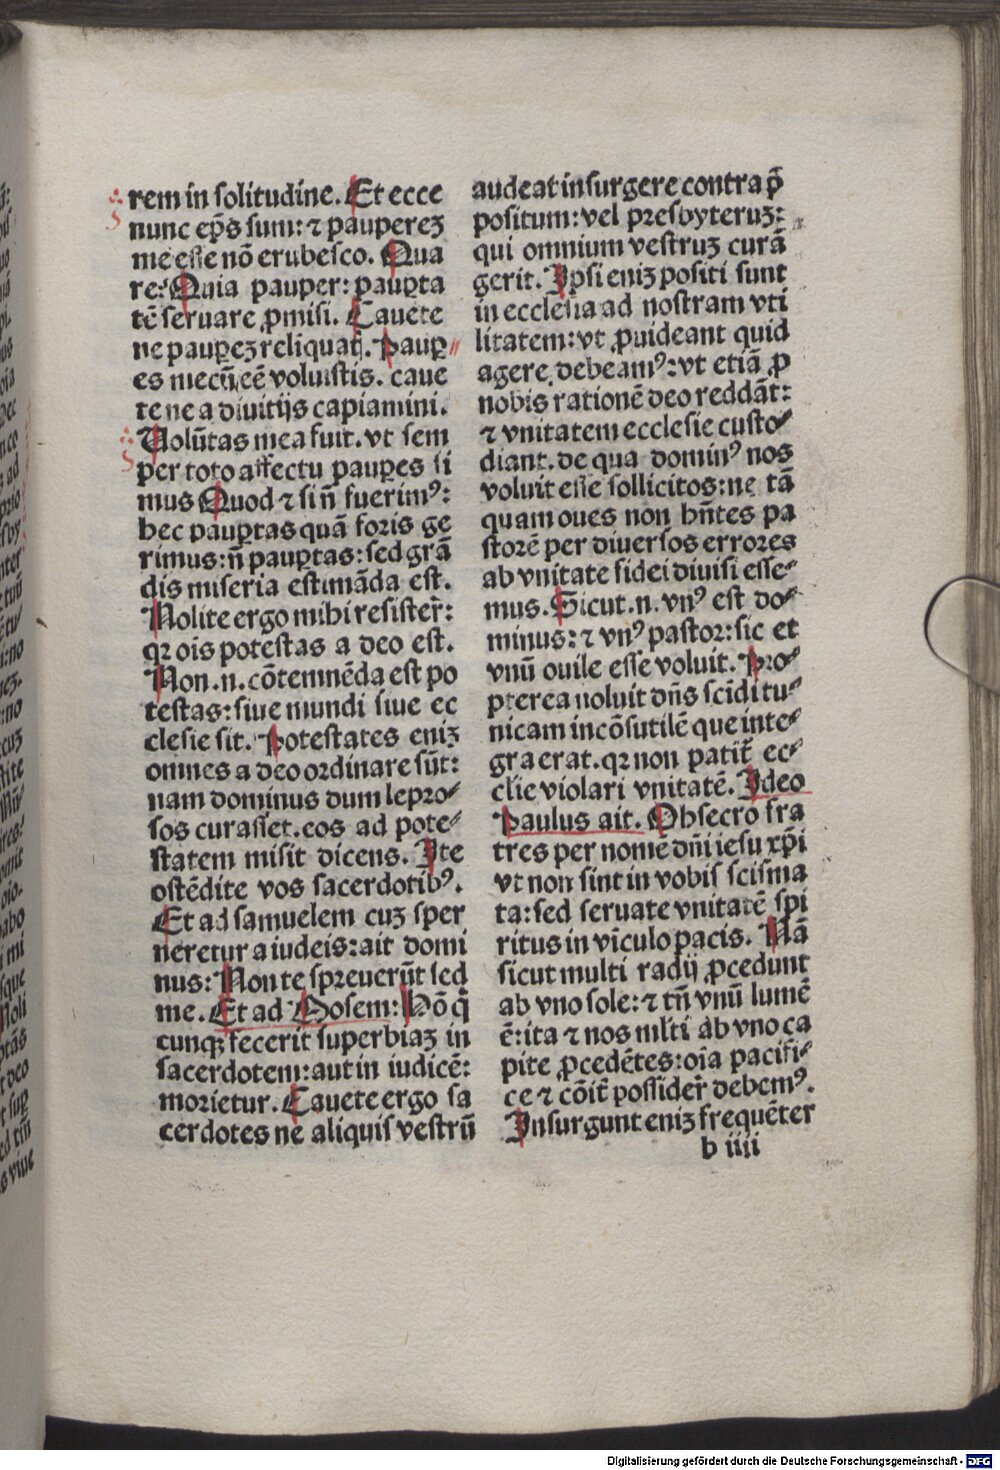 rem in solitudine. Et ecce
nunc ep̄s sum: ⁊ paupereꝫ
me esse nō erubesco. Qua
re? Quia pauper: pauꝑta
tē seruare ꝓmisi. Cauete
ne pauꝑeꝫ reliquat̄. Pauꝑ
es mecū eē voluistis. caue
te ne a diuitijs capiamini.
Uolūtas mea fuit. vt sem
per toto affectu pauꝑes si
mus Quod ⁊ si n̄ fuerimꝰ:
hec pauꝑtas quā foris ge
rimus: n̄ pauꝑtas: sed grā
dis miseria estimāda est.
Nolite ergo mihi resister̄:
qꝛ ois potestas a deo est.
Non .n. cōtemnēda est po
testas: siue mundi siue ec
clesie sit. Potestates eniꝫ
omnes a deo ordinare sūt:
nam dominus dum lepro⸗
sos curasset. eos ad pote⸗
statem misit dicens. Ite
ostēdite vos sacerdotibꝰ.
Et ad samuelem cuꝫ sper
neretur a iudeis: ait domi
nus: Non te spreuerūt sed
me. Et ad Mosem: Hō q̄
cunqꝫ fecerit superbiaꝫ in
sacerdotem: aut in iudicē:
morietur. Cauete ergo sa
cerdotes ne aliquis vestrū
audeat insurgere contra p̄
positum: vel presbyteruꝫ:
qui omnium vestruꝫ curā
gerit. Ipsi eniꝫ positi sunt
in ecclesia ad nostram vti
litatem: vt ꝓuideant quid
agere debeamꝰ: vt etiā ꝓ
nobis rationē deo reddāt:
⁊ vnitatem ecclesie custo⸗
diant. de qua dominꝰ nos
voluit esse sollicitos: ne tā
quam oues non hn̄tes pa
storē per diuersos errores
ab vnitate fidei diuisi esse⸗
mus. Sicut .n. vnꝰ est do⸗
minus: ⁊ vnꝰ pastor: sic et
vnū ouile esse voluit. Pro⸗
pterea noluit dn̄s scīdi tu⸗
nicam incōsutilē que inte⸗
gra erat. qꝛ non patit̄ ec⸗
clīe violari vnitatē. Ideo
Paulus ait. Obsecro fra
tres per nomē dn̄i iesu xp̄i
vt non sint in vobis scisma
ta: sed seruate vnitatē spi
ritus in vīculo pacis. Nā
sicut multi radij ꝓcedunt
ab vno sole: ⁊ tn̄ vnū lumē
ē: ita ⁊ nos mlti ab vno ca
pite ꝓcedētes: oīa pacifi⸗
ce ⁊ cōit̄ possider̄ debemꝰ.
Insurgunt eniꝫ frequēter
b iiii
Digitalisierung gefördert durch die Deutsche Forschungsgemeinschaft - DFG